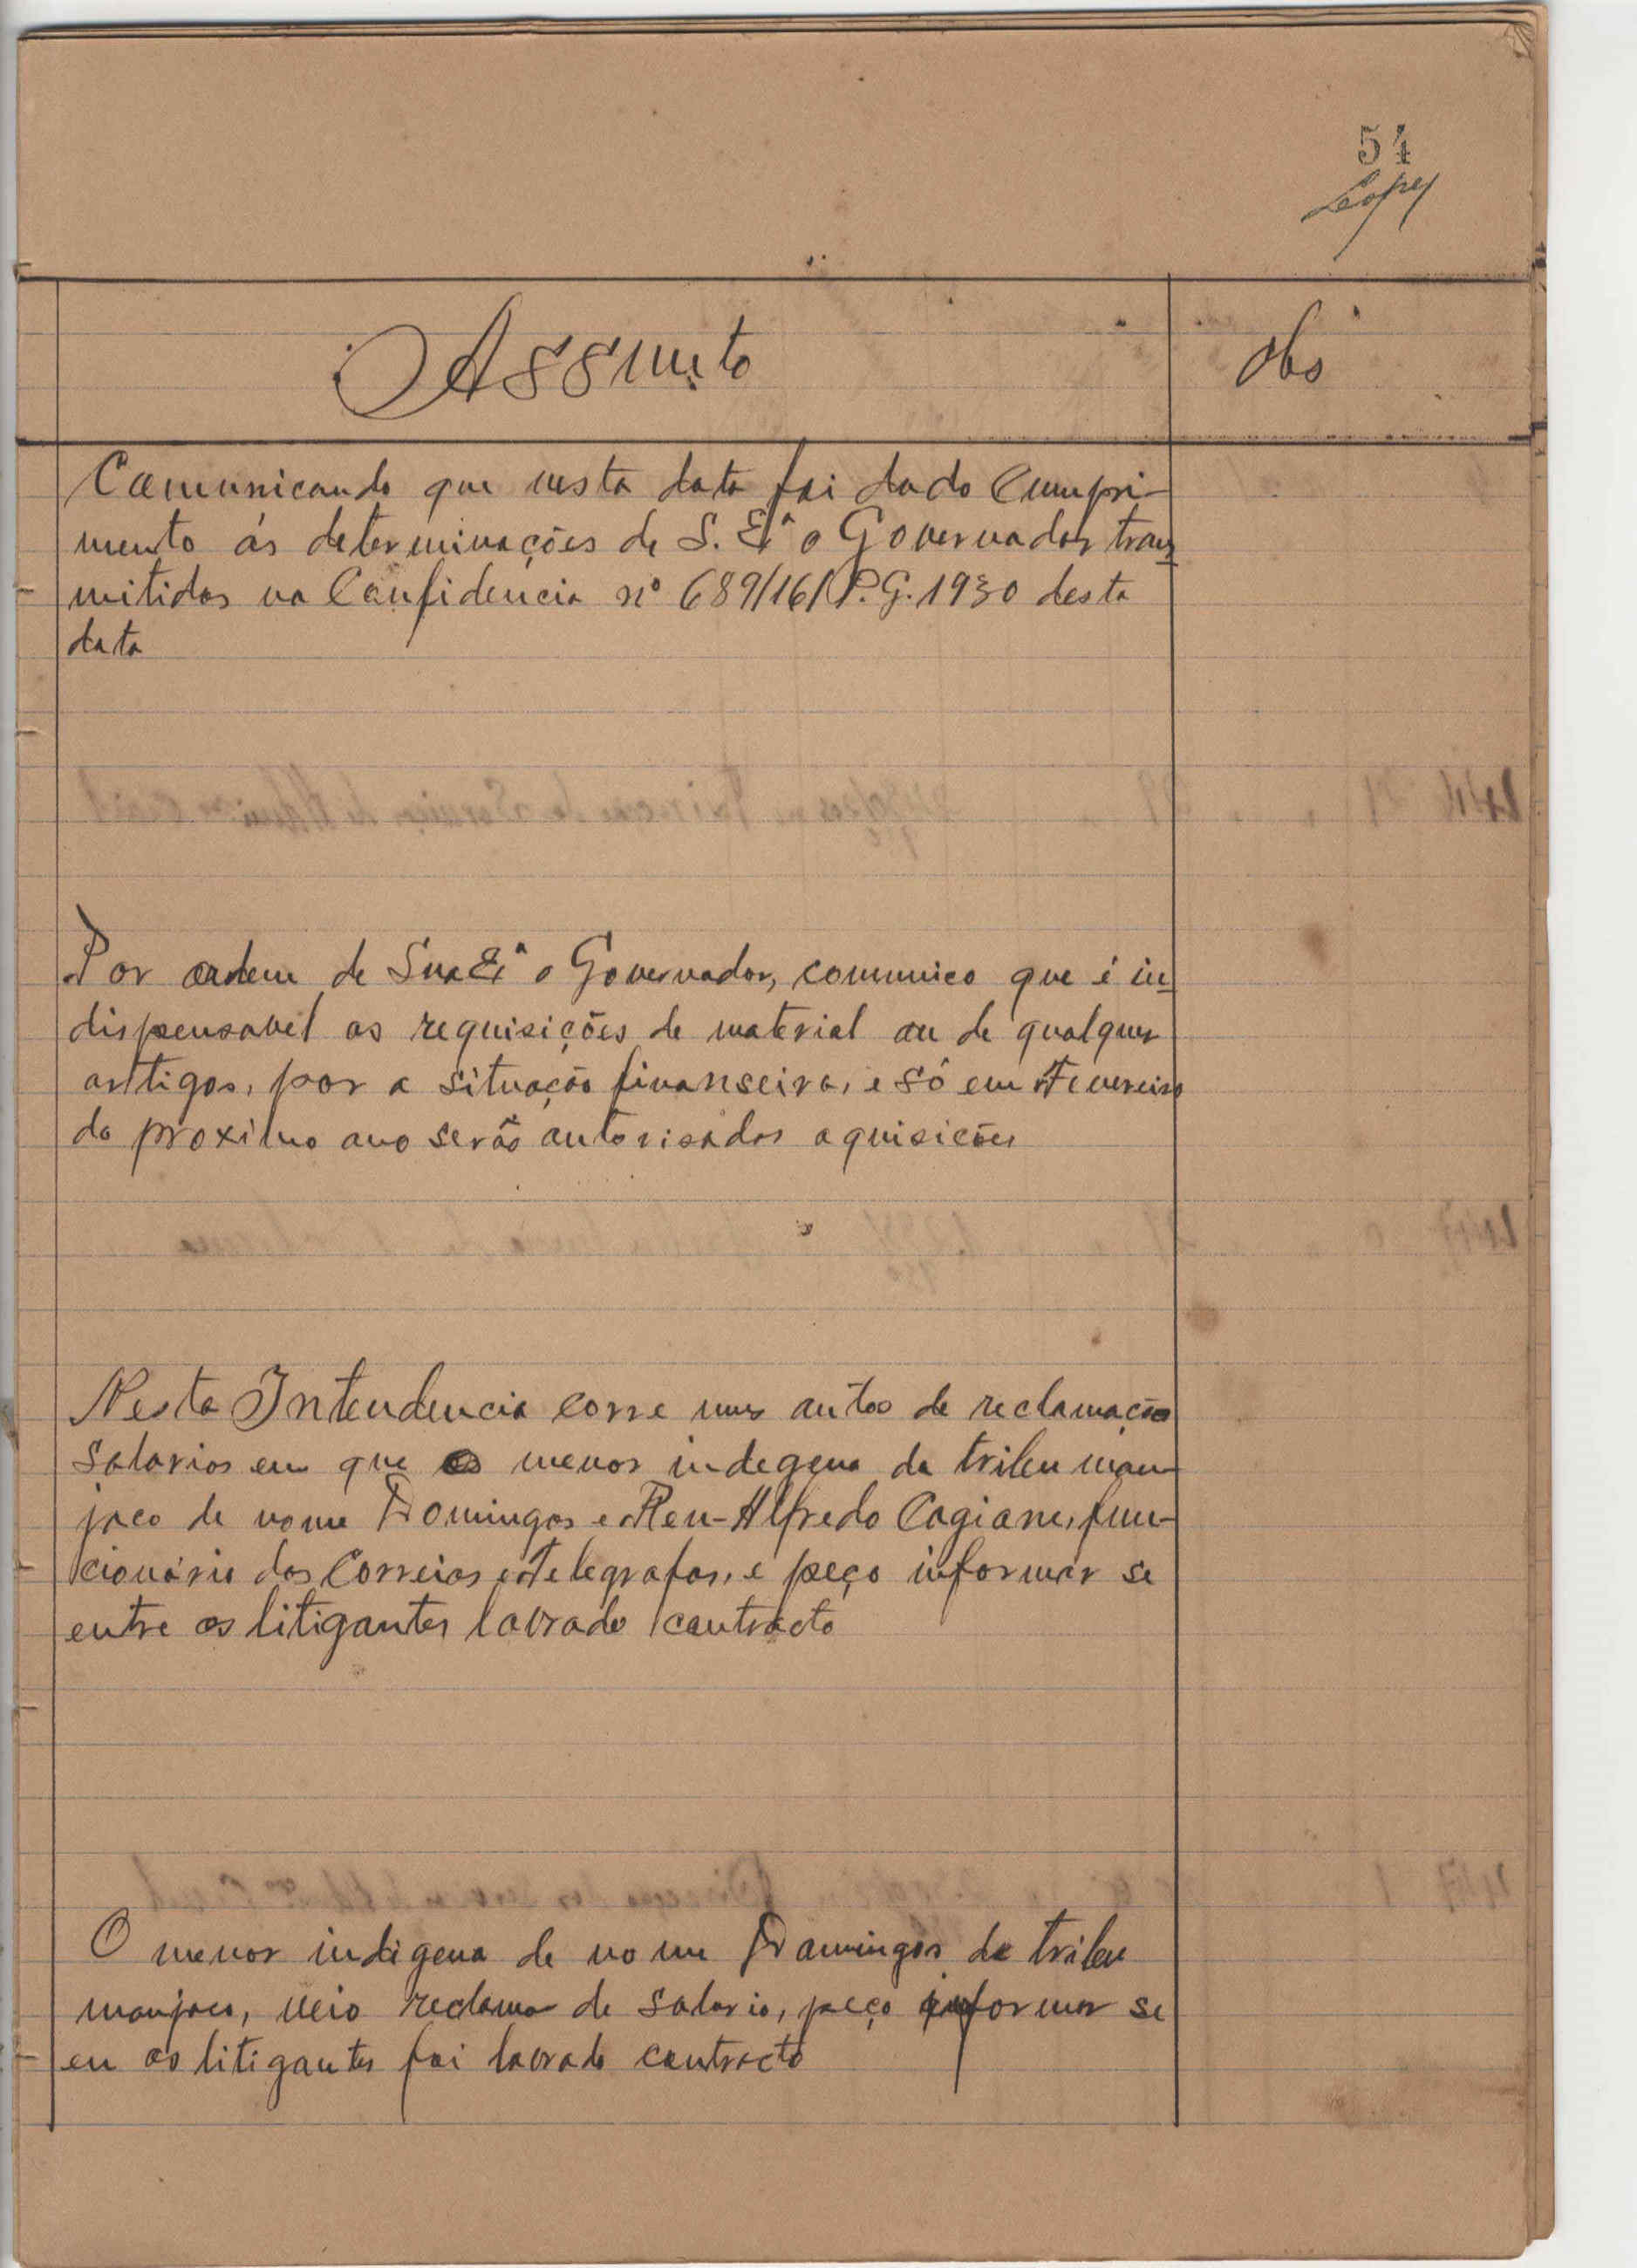 54
Lopes
Assunto
Obs
Comunicando que nesta data foi dado Cumpri-
mento ás determinações de S. Exª o Governador trans
mitidas na Confidencia nº 689/16/P.G.1930 desta
data
Por ordem de Sua Exª o Governador, comunico que é in
dispensavel as requisições de material ou de qualquer
arttigos, por a situação finanseira, e só em Fevereiro
do proximo ano serão autorisadas aquisicões
Nesta Intendencia corre uns autos de reclamação
salarios em que os menor indegena da tribu man-
jaco de nome Domingos e Reu-Alfredo Cagiane, fun-
cionário dos Correios e Telegrafos, e peço informar se
entre os litigantes lavrado contracto
O menor indigena de nome Domingos da tribu
manjaco, veio reclamar de salario, peço informar se
en os litigantes foi lavrado contracto